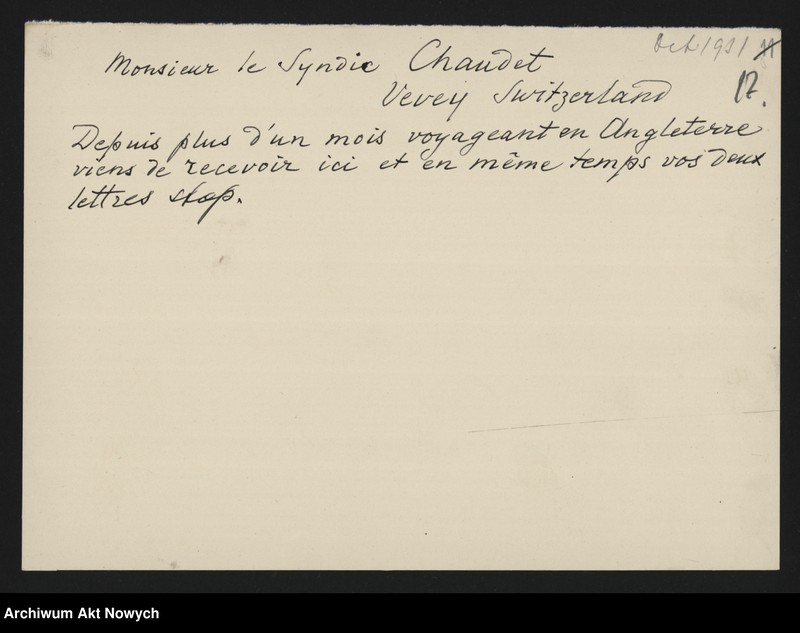 Oct 1931
17.
Monsieur le Syndic Chaudet
Vevey Switzerland
Depuis plus d'un mois voyageant en Angleterre
viens de recevoir ici et en même temps vos deux
lettres stop.
Archiwum Akt Nowych